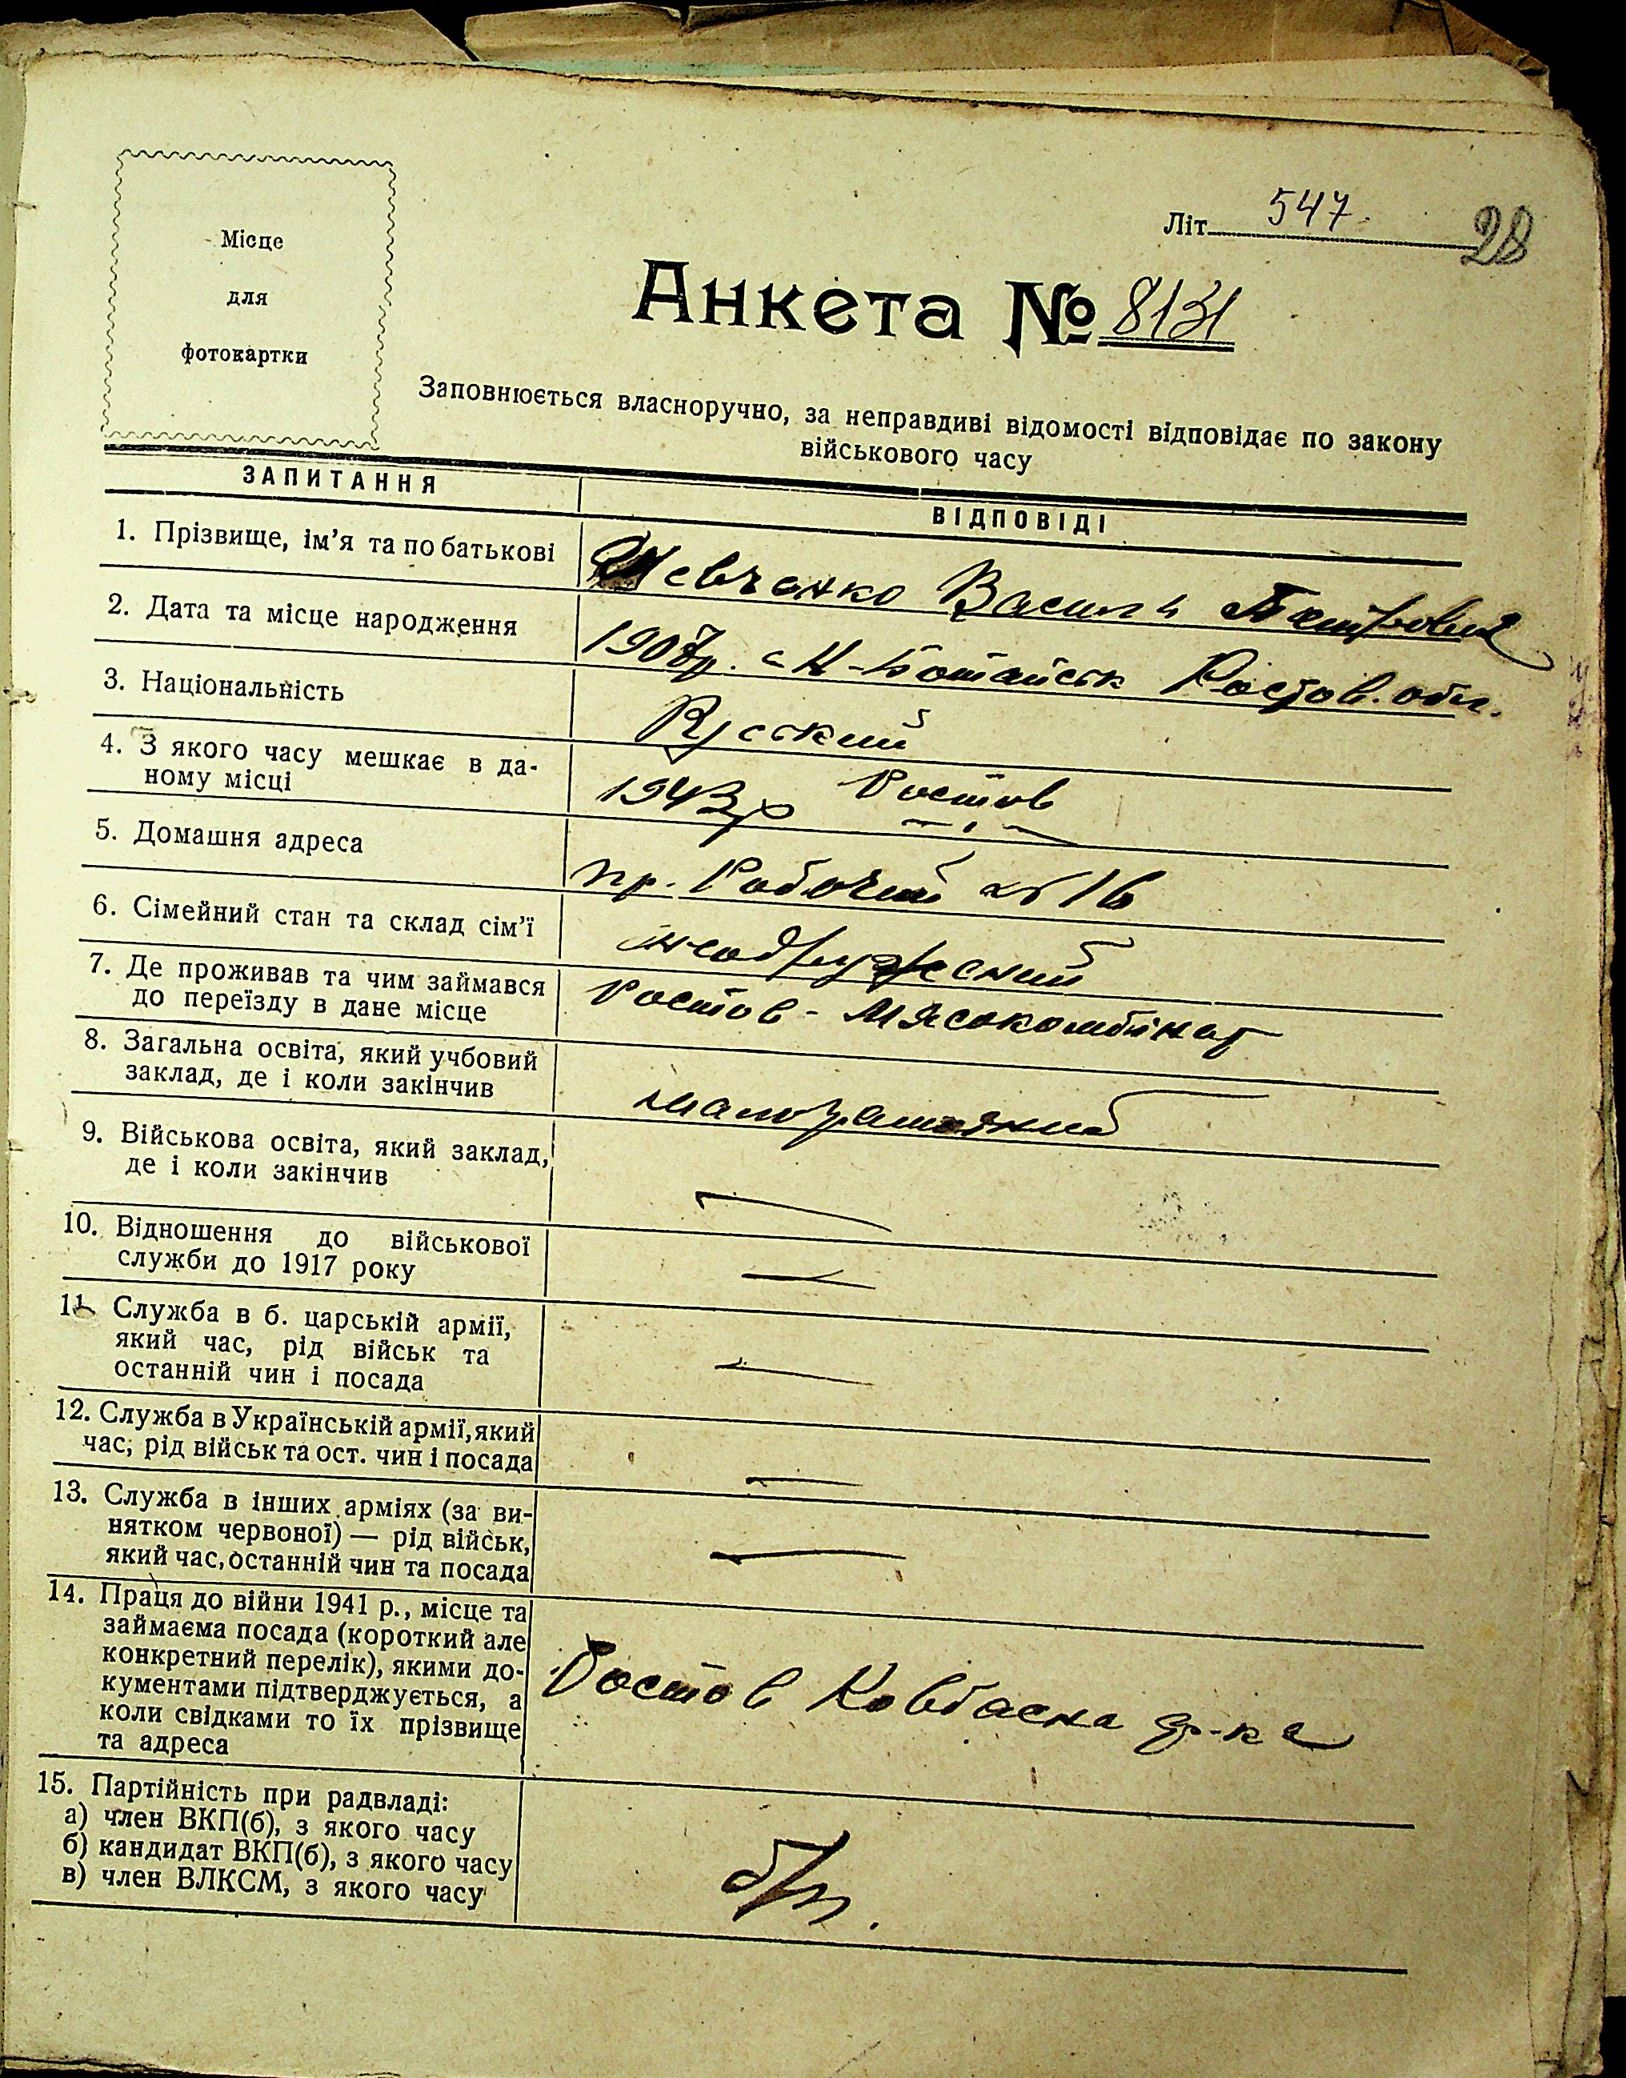 Місце
для
фотокартки
Літ 547.
28
Анкета № 8131
Заповнюється власноручно, за неправдиві відомості відповідає по закону
військового часу
ЗАПИТАННЯ
ВІДПОВІДІ
1. Прізвище, ім’я та по батькові
Шевченко Василь Петрович
2. Дата та місце народження
с. Н-Ботайськ Ростов. обл.
3. Національність
Руский
4. З якого часу мешкає в да-
ному місці
1943р Ростов
5. Домашня адреса
пр. Робочий
6. Сімейний стан та склад сім’ї
неодружений
7. Де проживав та чим займався
до переїзду в дане місце
Ростов - Мясокомбінат
8. Загальна освіта, який учбовий
заклад, де і коли закінчив
малограмотний
9. Військова освіта, який заклад,
де і коли закінчив
—
10. Відношення до військової
служби до 1917 року
—
11. Служба в б. царській армії,
який час, рід військ та
останній чин і посада
—
12. Служба в Українській армії, який
час, рід військ та ост. чин і посада
—
13. Служба в інших арміях (за ви-
нятком червоної) — рід військ,
який час, останній чин та посада
—
14. Праця до війни 1941 р., місце та
займаєма посада (короткий але
конкретний перелік), якими до-
кументами підтверджується, а
коли свідками то їх прізвище
та адреса
Ростов Ковбасна ф-ка
15. Партійність при радвладі:
а) член ВКП(б), з якого часу
б) кандидат ВКП(б), з якого часу
в) член ВЛКСМ, з якого часу
б/п.